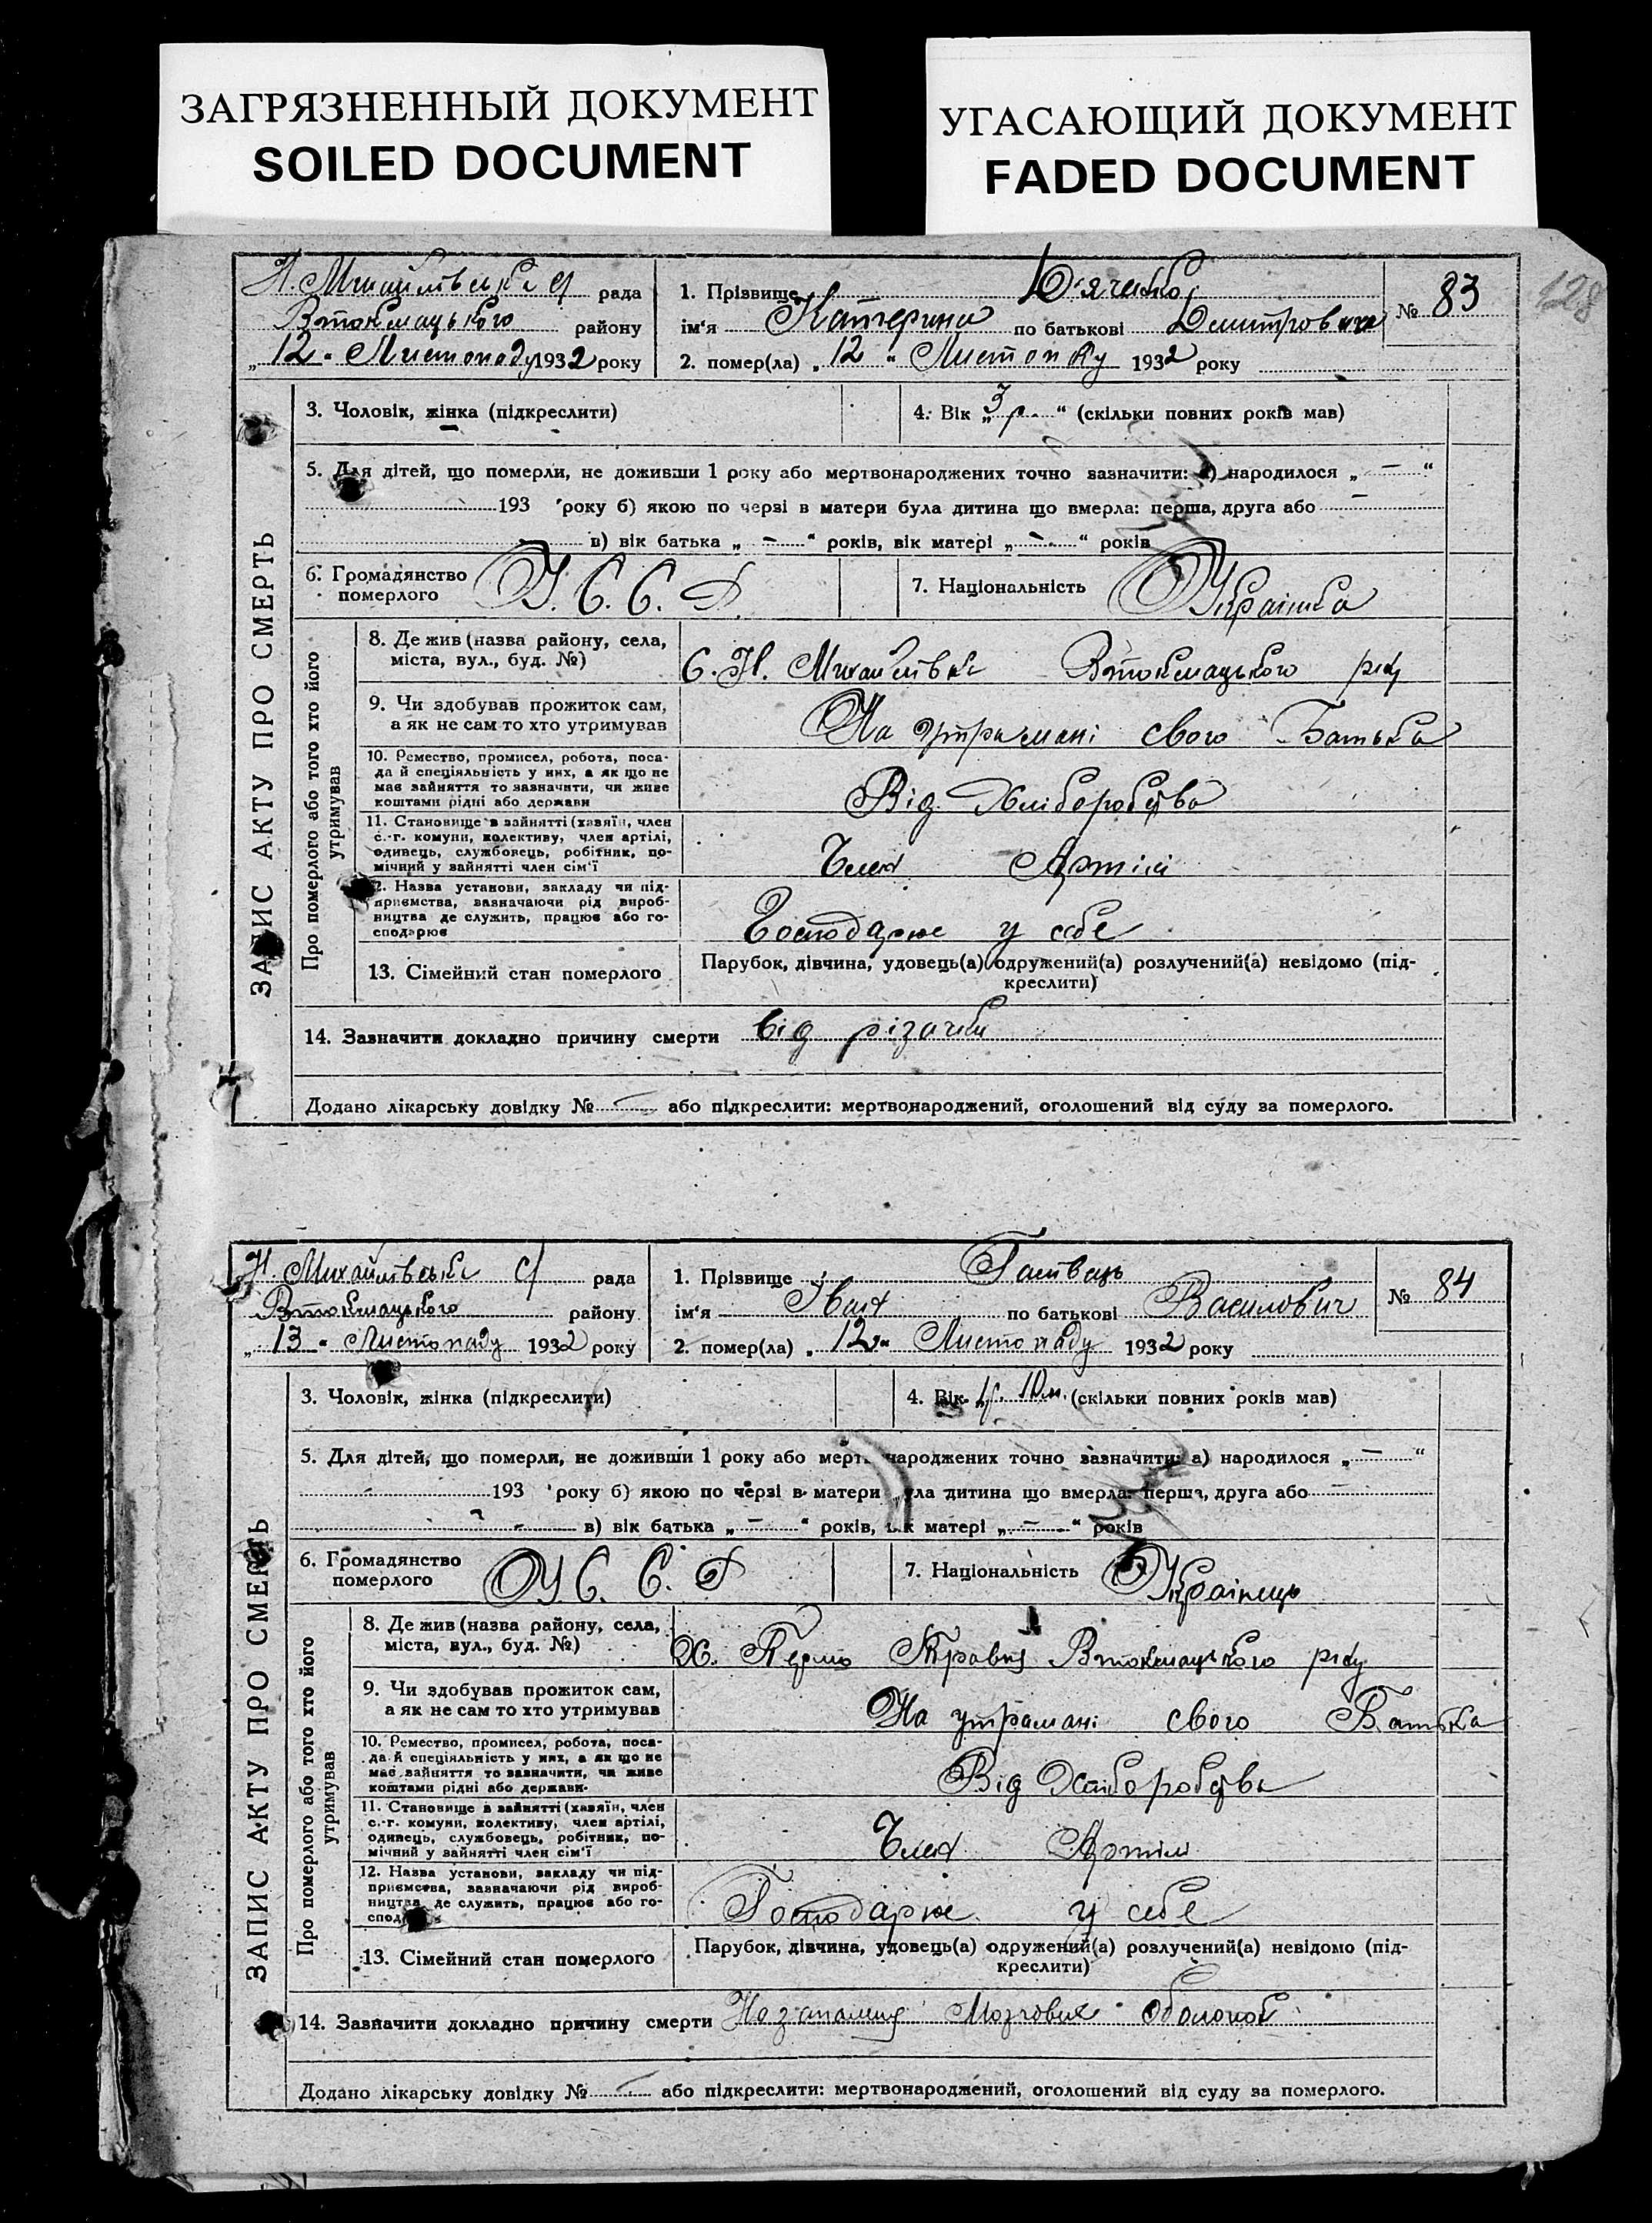 ЗАГРЯЗНЕННЫЙ ДОКУМЕНТ
SOILED DOCUMENT
УГАСАЮЩИЙ ДОКУМЕНТ
FADED DOCUMENT
128
ЗАПИС АКТУ ПРО СМЕРТЬ
Н. Михайлівська с/ рада
Втокмацького району
„12“ Листопаду 1932 року
1. Прізвище Дяченко
ім‘я Катерина по батькові Дмитровна
2. помер(ла) „12“ Листопаду 1932 року
№ 83
3. Чоловік, жінка (підкреслити)
4. Вік „3 р.“ (скільки повних років мав)
5. Для дітей, що померли, не доживши 1 року або мертвонароджених точно зазначити: а) народилося „—“
193 року б) якою по черзі в матери була дитина що вмерла: перша, друга або —
в) вік батька „—“ років, вік матері „—“ років
6. Громадянство
померлого У.С.С.Р.
7. Національність Українка
Про померлого або того хто його
утримував
8. Де жив (назва району, села,
міста, вул., буд. №)
С. Н. Михайлівка Втокмацького р-ну
9. Чи здобував прожиток сам,
а як не сам то хто утримував
На утримані свого Батька
10. Ремество, промисел, робота, поса-
да й спеціяльність у них, а як що не
має зайняття то зазначити, чи живе
коштами рідні або держави
Від Хліборобства
11. Становище в зайнятті (хазяїн, член
с.-г. комуни, колективу, член артілі,
одинець, службовець, робітник, по-
мічний у зайнятті член сім‘ї
Член Артілі
12. Назва установи, закладу чи під-
приємства, зазначаючи рід вироб-
ництва де служить, працює або го-
сподарює
Господарює у себе
13. Сімейний стан померлого
Парубок, дівчина, удовець(а) одружений(а) розлучений(а) невідомо (під-
креслити)
14. Зазначити докладно причину смерти від різачки
Додано лікарську довідку № — або підкреслити: мертвонароджений, оголошений від суду за померлого.
ЗАПИС АКТУ ПРО СМЕРТЬ
Н. Михайлівська с/ рада
Втокмацького району
„13“ Листопаду 1932 року
1. Прізвище
ім‘я Іван по батькові Василович
2. помер(ла) „12“ Листопаду 1932 року
№ 84
3. Чоловік, жінка (підкреслити)
4. Вік „1 р. 10 м. (скільки повних років мав)
5. Для дітей, що померли, не доживши 1 року або мертвонароджених точно зазначити: а) народилося „—“
193 року б) якою по черзі в матери була дитина що вмерла: перша, друга або —
в) вік батька „—“ років, вік матері „—“ років
6. Громадянство
померлого У.С.С.Р
7. Національність Українець
Про померлого або того хто його
утримував
8. Де жив (назва району, села,
міста, вул., буд. №)
Х. Травня Втокмацького р-ну
9. Чи здобував прожиток сам,
а як не сам то хто утримував
На утримані свого Батька
10. Ремество, промисел, робота, поса-
да й спеціяльність у них, а як що не
має зайняття то зазначити, чи живе
коштами рідні або держави
Від Хліборобства
11. Становище в зайнятті (хазяїн, член
с.-г. комуни, колективу, член артілі,
одинець, службовець, робітник, по-
мічний у зайнятті член сім‘ї
Член Артілі
12. Назва установи, закладу чи під-
приємства, зазначаючи рід вироб-
ництва де служить, працює або го-
сподарює
Господарює у себе
13. Сімейний стан померлого
Парубок, дівчина, удовець(а) одружений(а) розлучений(а) невідомо (під-
креслити)
14. Зазначити докладно причину смерти На запалення Мозгових оболонок
Додано лікарську довідку № — або підкреслити: мертвонароджений, оголошений від суду за померлого.